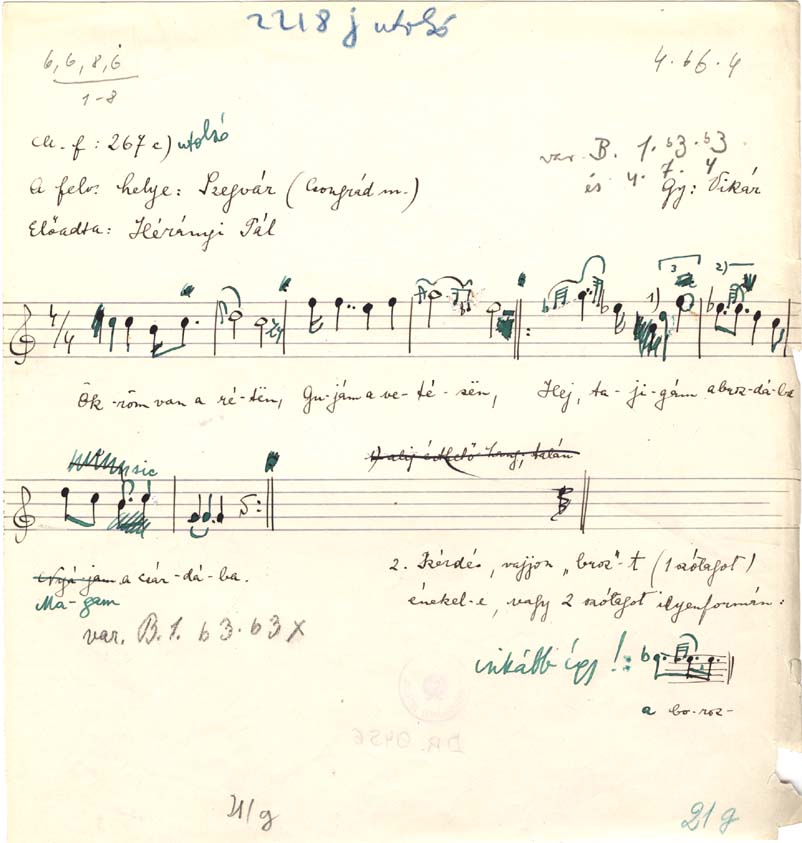 2218 j utolsó
6, 6, 8, 6
1-8
4. b6. 4
M. f: 267 c) utolsó
var. B. 1. b3. b3
és 4. 7. 4
A felv. helye: Szegvár (Csongrád m.)
Gy: Vikár
Előadta: Hérányi Pál
4/4
3
1)
2)
Ök-röm van a ré-tën, Gu-jám a ve-té-sën, Hej, ta-ji-gám a broz-dá-ba
sic
1) alig érthető hang, talán
Nyá-jam a csár-dá-ba.
Ma-gam
2. Kérdés, vajjon „broz"-t (1 szótagot)
énekel-e, vagy 2 szótagot ilyenformán:
var. B. 1. b3. b3 x
inkább így!:
a bo-roz-
DR. 0456
21/g
21 g